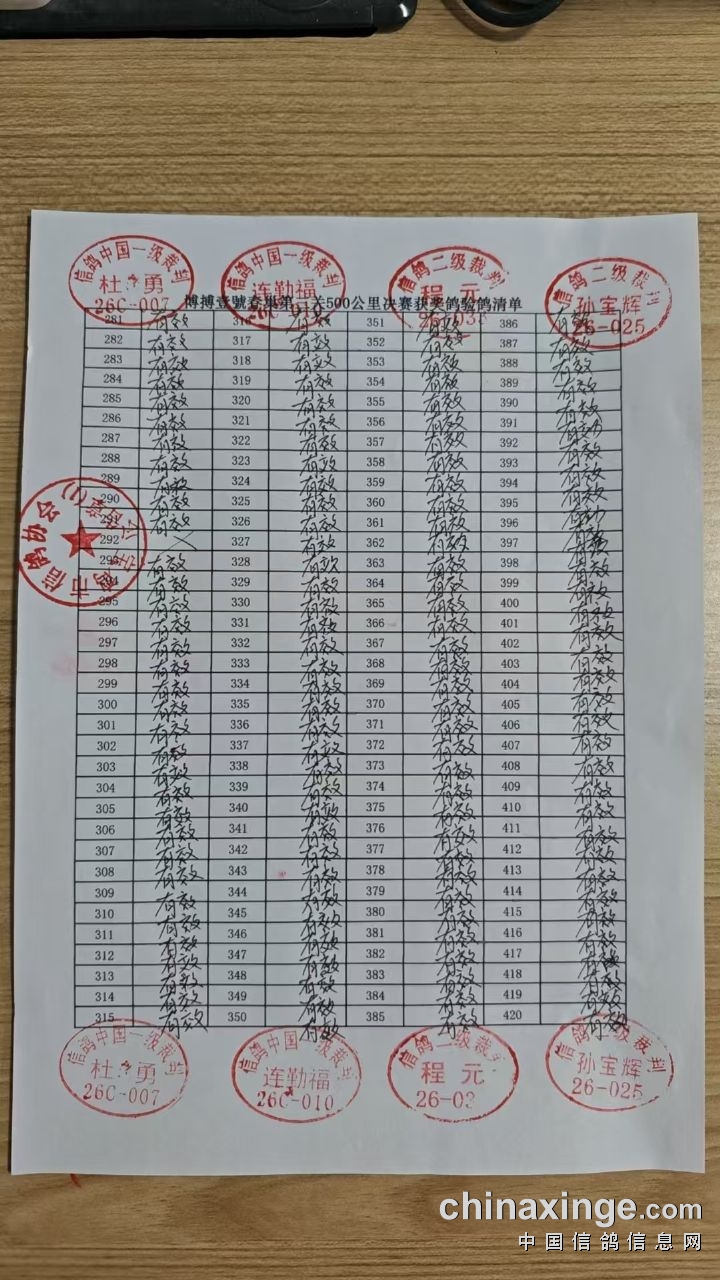 信鸽中国一级裁判 信鸽中国一级裁判 信鸽二级裁判 信鸽二级裁判
杜 勇 连勤福 程元 孙宝辉
26C-007 26-025
壹號 第 关500公里决赛获奖鸽验鸽清单
281 有效 316 有效 351 有效 386 有效
282 有效 317 有效 352 有效 387 有效
283 有效 318 有效 353 有效 388 有效
284 有效 319 有效 354 有效 389 有效
285 有效 320 有效 355 有效 390 有效
286 有效 321 有效 356 有效 391 有效
287 有效 322 有效 357 有效 392 有效
288 有效 323 有效 358 有效 393 有效
289 有效 324 有效 359 有效 394 有效
290 有效 325 有效 360 有效 395 有效
291 有效 326 有效 361 有效 396 有效
292 × 327 有效 362 有效 397 有效
293 有效 328 有效 363 有效 398 有效
294 有效 329 有效 364 有效 399 有效
295 有效 330 有效 365 有效 400 有效
296 有效 331 有效 366 有效 401 有效
297 有效 332 有效 367 有效 402 有效
298 有效 333 有效 368 有效 403 有效
299 有效 334 有效 369 有效 404 有效
300 有效 335 有效 370 有效 405 有效
301 有效 336 有效 371 有效 406 有效
302 有效 337 有效 372 有效 407 有效
303 有效 338 有效 373 有效 408 有效
304 有效 339 有效 374 有效 409 有效
305 有效 340 有效 375 有效 410 有效
306 有效 341 有效 376 有效 411 有效
307 有效 342 有效 377 有效 412 有效
308 有效 343 有效 378 有效 413 有效
309 有效 344 有效 379 有效 414 有效
310 有效 345 有效 380 有效 415 有效
311 有效 346 有效 381 有效 416 有效
312 有效 347 有效 382 有效 417 有效
313 有效 348 有效 383 有效 418 有效
314 有效 349 有效 384 有效 419 有效
315 有效 350 有效 385 有效 420 有效
市信鸽协会
信鸽中国一级裁判 信鸽中国一级裁判 信鸽二级裁判 信鸽二级裁判
杜 勇 连勤福 程元 孙宝辉
26C-007 26C-010 26-03 26-025
chinaxinge.com
中国信鸽信息网